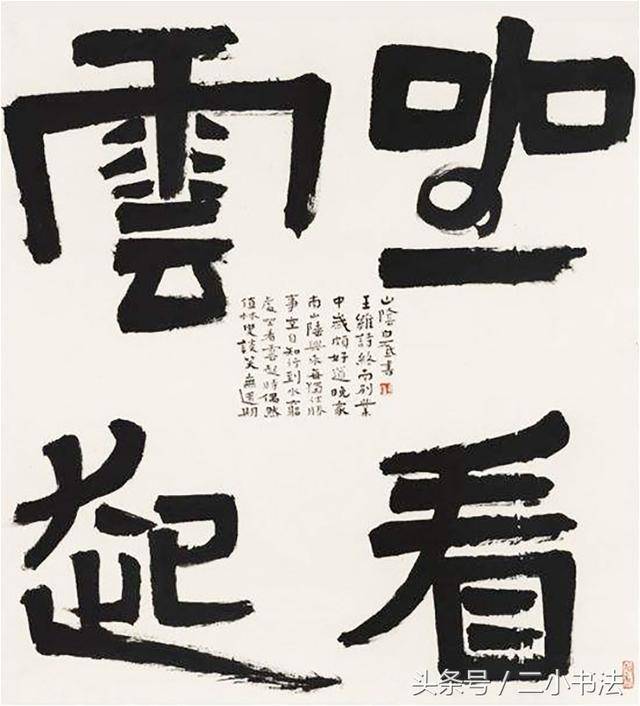 坐看
雲起
山陰白砥書
王維詩終南別業
中歲頗好道晚家
南山陲興來每獨往勝
事空自知行到水窮
處坐看雲起時偶然
值林叟談笑無還期
头条号 / 三小书法